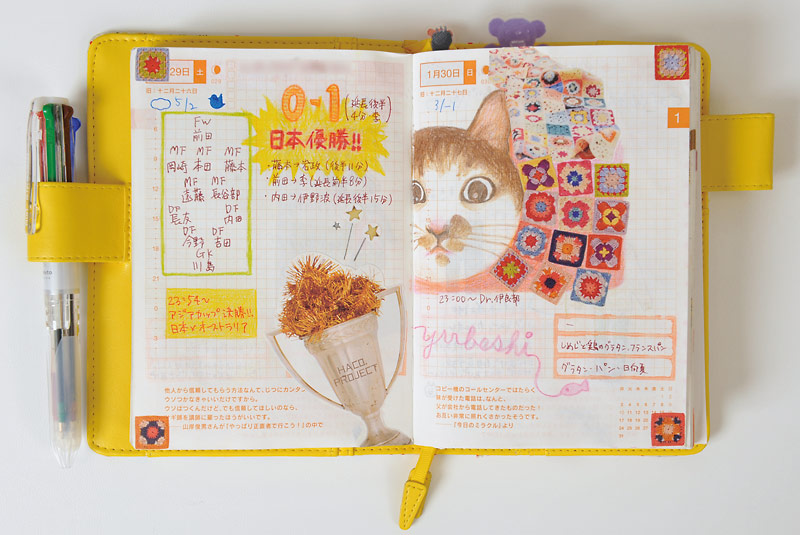 29日 土
旧・十二月二十六日
5/2
0-1
(延長後半
4分・李)
日本優勝!!
FW
前田
MF MF MF
岡崎 本田 藤本
MF MF
遠藤 長谷部
DF DF
長友 内田
DF DF
今野 吉田
GK
川島
・藤本→岩政(後半11分)
・前田→李(延長前半8分)
・内田→伊野波(延長後半15分)
23:54~
アジアカップ決勝!!
日本×オーストラリア
HACO.
PROJECT
他人から信頼してもらう方法なんて、じつにカンタン。
ウソつかなきゃいいだけですから。
ウソはつくんだけど、でも信頼してほしいのなら、
──山岸俊男さんが『やっぱり正直者で行こう!』の中で
1月30日 日
旧・十二月二十七日
3/-1
1
23:00~ Dr.伊良部
yubeshi
しめじと鶏のグラタン、フランスパン
グラタン・パン・日向夏
コピー機のコールセンターではたらく
妹が受けた電話は、なんと、
父が会社から電話してきたものだった!
お互い非常に照れくさかったそうです。
──『今日のミラクル』より